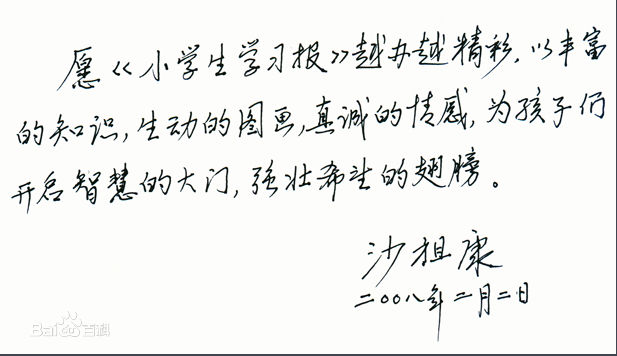 愿《小学生学习报》越办越精彩，以丰富
的知识，生动的图画，真诚的情感，为孩子们
开启智慧的大门，强壮希望的翅膀。
沙祖康
二〇〇八年二月二日
Baidu百科